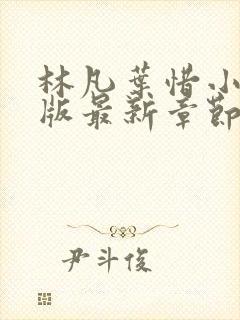 林凡葉惜小
版最新章節
尹斗俊